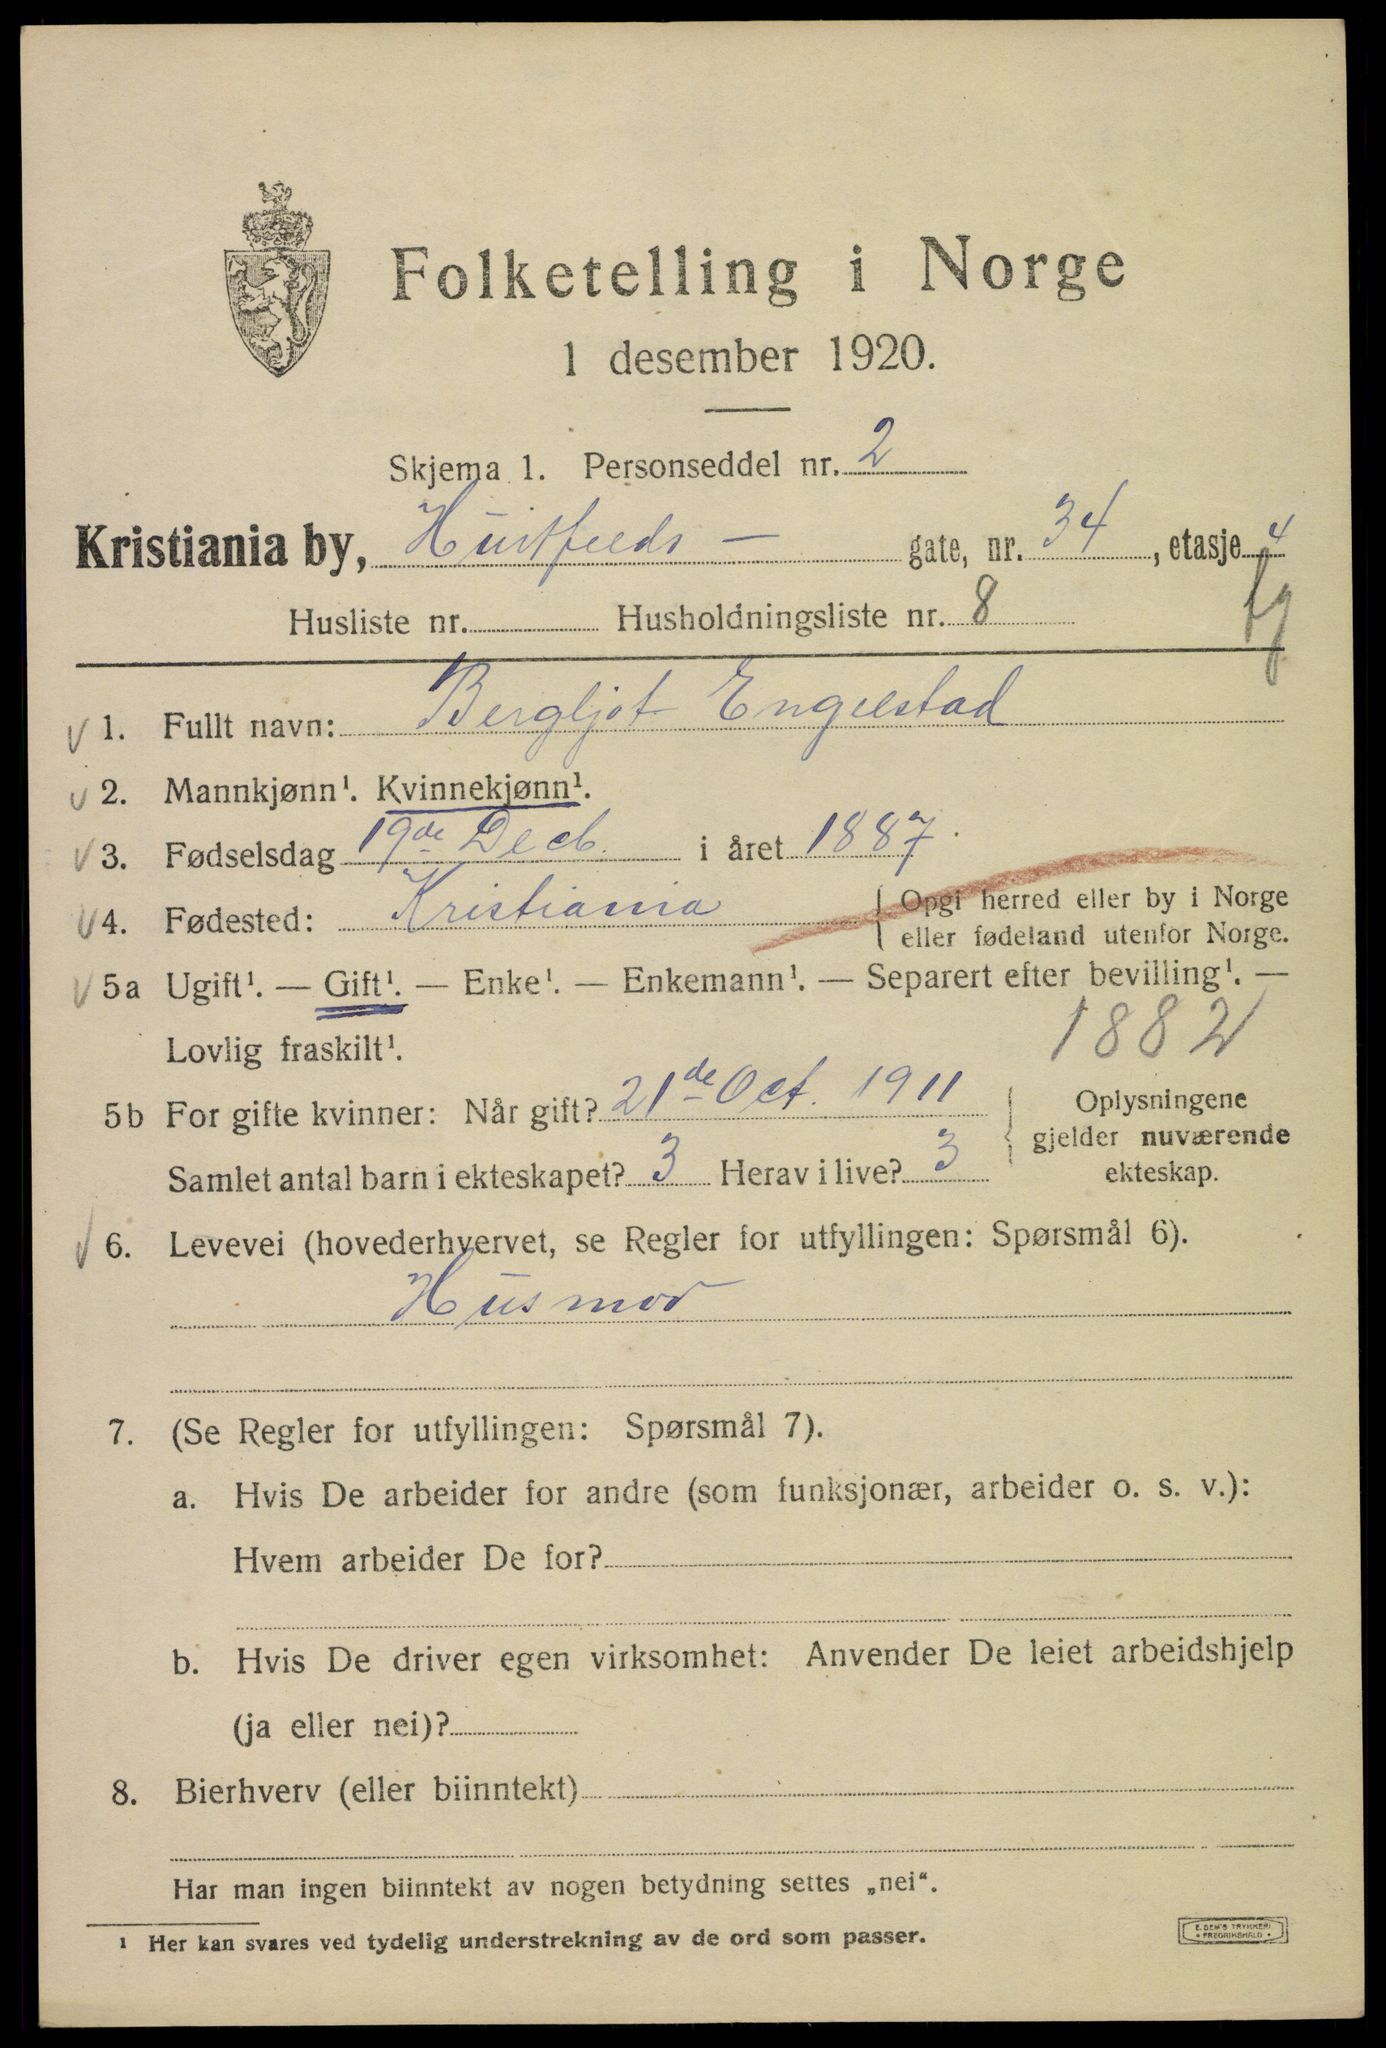 Folketelling i Norge
1 desember 1920.
Skjema 1. Personseddel nr. 2
Kristiania by, Huitfelds – gate, nr. 34, etasje 4
Husliste nr. Husholdningsliste nr. 8
1. Fullt navn: Bergljot Engelstad
2. Mannkjønn¹. Kvinnekjønn¹.
3. Fødselsdag 19de Decb. i året 1887
4. Fødested: Kristiania { Opgi herred eller by i Norge
eller fødeland utenfor Norge.
5a Ugift¹. — Gift¹. — Enke¹. — Enkemann¹. — Separert efter bevilling¹. —
Lovlig fraskilt¹. 1882
5b For gifte kvinner: Når gift? 21de Oct. 1911 { Oplysningene
gjelder nuværende
ekteskap.
Samlet antal barn i ekteskapet? 3 Herav i live? 3
6. Levevei (hovederhvervet, se Regler for utfyllingen: Spørsmål 6).
Husmor
7. (Se Regler for utfyllingen: Spørsmål 7).
a. Hvis De arbeider for andre (som funksjonær, arbeider o. s. v.):
Hvem arbeider De for?
b. Hvis De driver egen virksomhet: Anvender De leiet arbeidshjelp
(ja eller nei)?
8. Bierhverv (eller biinntekt)
Har man ingen biinntekt av nogen betydning settes „nei“.
¹ Her kan svares ved tydelig understrekning av de ord som passer.
E. SEM'S TRYKKERI
• FREDRIKSHALD •